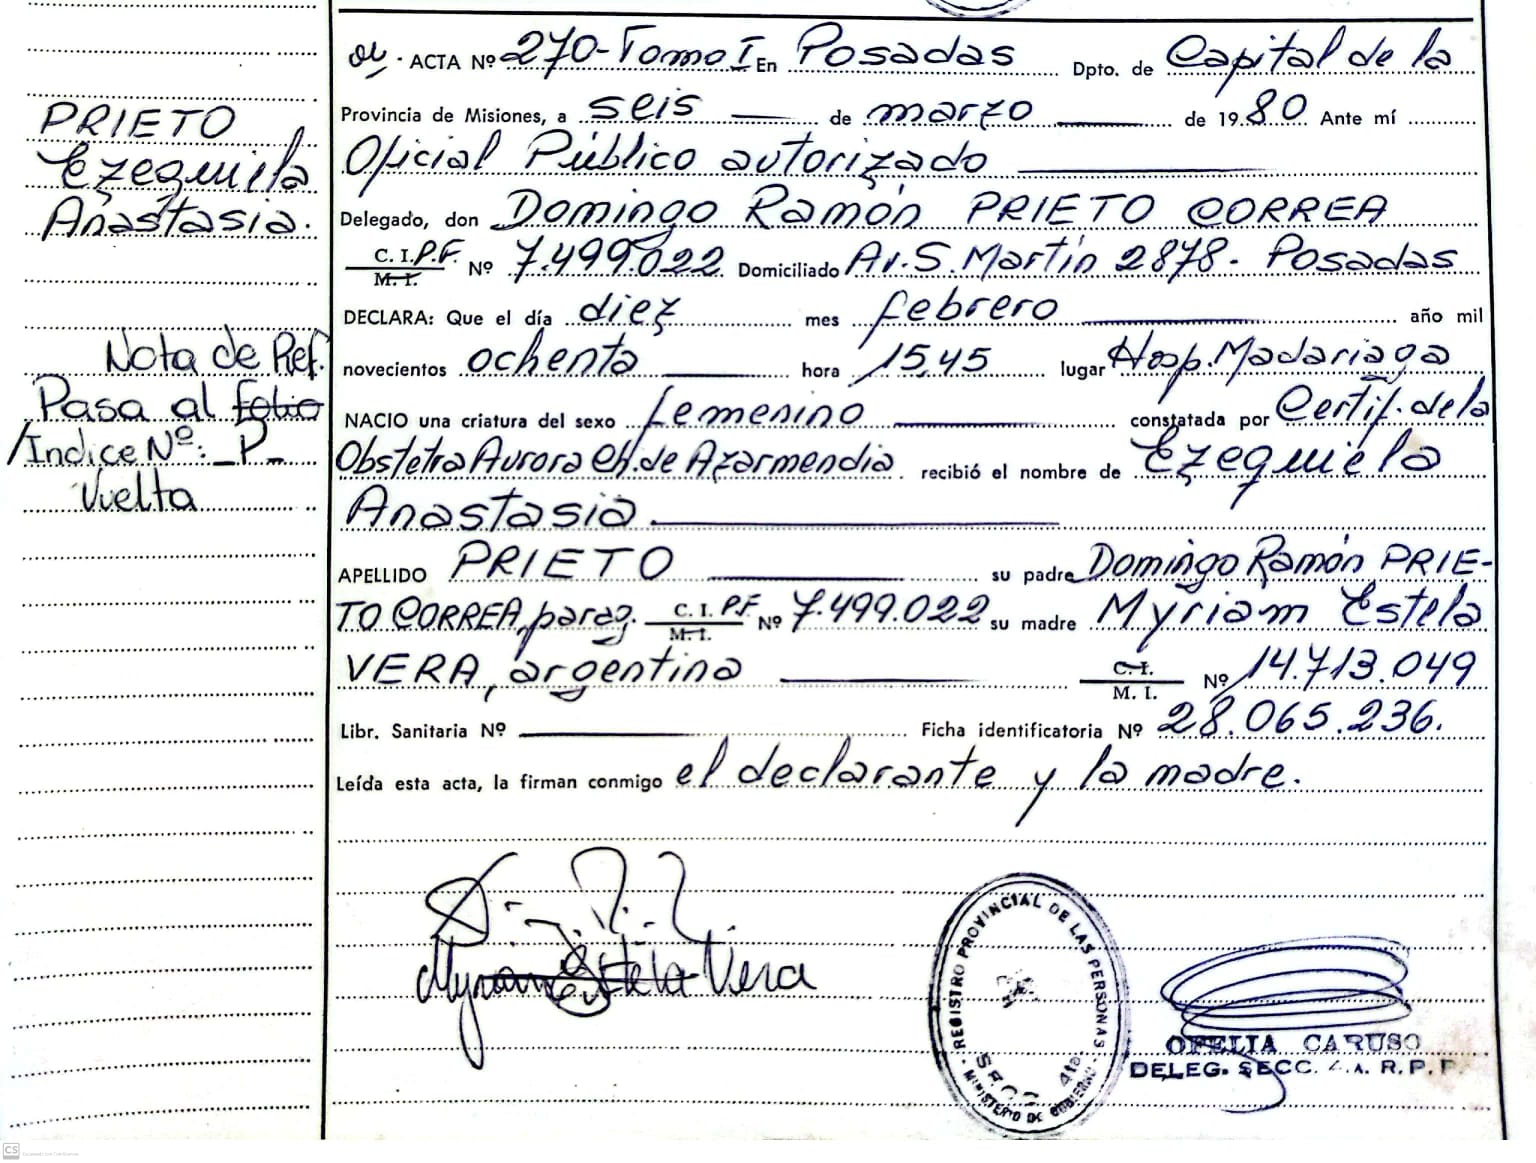 PRIETO
Ezequiela
Anastasia.
Nota de Ref.
Pasa al folio
/Indice Nº: _P_
Vuelta
ACTA Nº 270-Tomo I En Posadas Dpto. de Capital de la
Provincia de Misiones, a seis de marzo de 1980 Ante mí
Oficial Público autorizado
Delegado, don Domingo Ramón PRIETO CORREA
C. I. P.F. M. I. Nº 7.499.022 Domiciliado Av. S. Martín 2878. Posadas
DECLARA: Que el día diez mes febrero año mil
novecientos ochenta hora 15,45 lugar Hosp. Madariaga
NACIO una criatura del sexo femenino constatada por Certif. de la
Obstetra Aurora Ch. de Azarmendia recibió el nombre de Ezequiela
Anastasia.
APELLIDO PRIETO su padre Domingo Ramón PRIE-
TO CORREA, parag. C. I. P.F. M. I. Nº 7.499.022 su madre Myriam Estela
VERA, argentina C. I. M. I. Nº 14.713.049
Libr. Sanitaria Nº Ficha identificatoria Nº 28.065.236.
Leída esta acta, la firman conmigo el declarante y la madre.
Myriam Estela Vera
REGISTRO PROVINCIAL DE LAS PERSONAS
SECC 4ta.
MINISTERIO DE GOBIERNO
OFELIA CARUSO
DELEG. SECC. 4.a. R. P. P.
CS